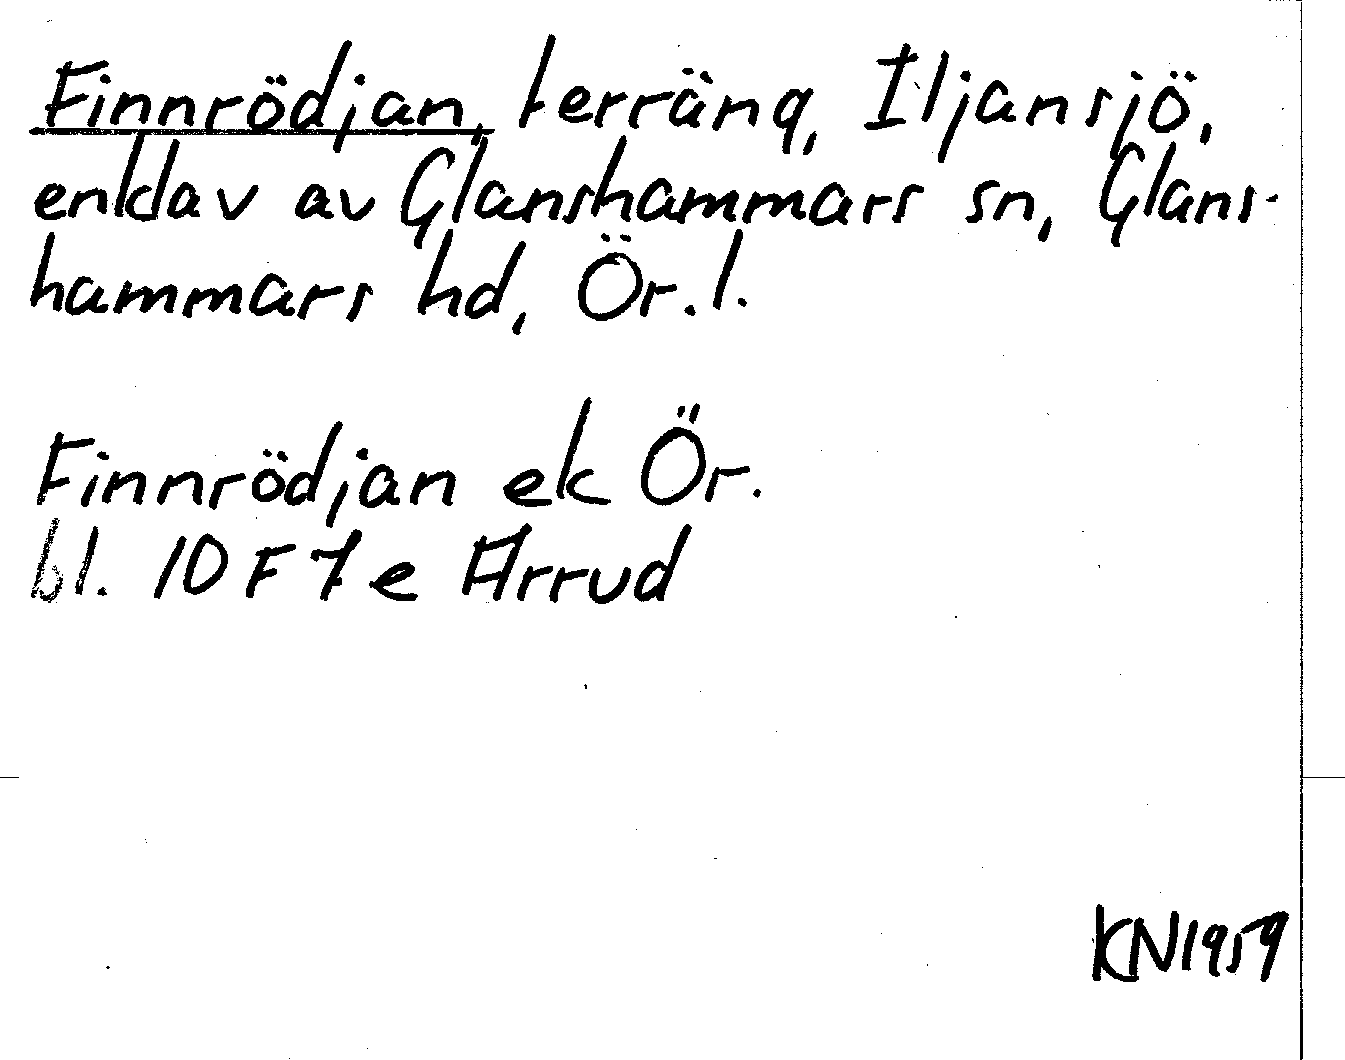 Finnrödjan, terräng, Iljansjö,
enklav av Glanshammars sn, Glans-
hammars hd, Ör. l.
Finnrödjan ek Ör.
bl. 10 F 7 e Ärrud
KN1959